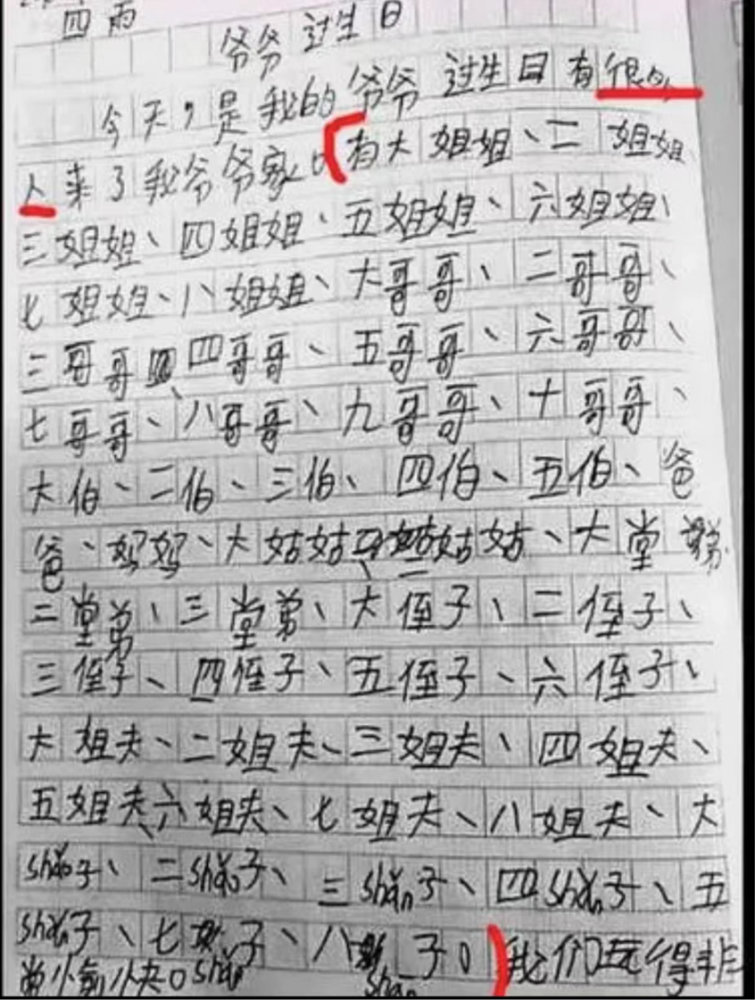 四 雨
爷爷过生日
今天，是我的爷爷过生日有很多
人来了我爷爷家。有大姐姐、二姐姐、
三姐姐、四姐姐、五姐姐、六姐姐、
七姐姐、八姐姐、大哥哥、二哥哥、
三哥哥、四哥哥、五哥哥、六哥哥、
七哥哥、八哥哥、九哥哥、十哥哥、
大伯、二伯、三伯、四伯、五伯、爸
爸、妈妈、大姑姑、二姑姑、大堂弟、
二堂弟、三堂弟、大侄子、二侄子、
三侄子、四侄子、五侄子、六侄子、
大姐夫、二姐夫、三姐夫、四姐夫、
五姐夫、六姐夫、七姐夫、八姐夫、大
shǎo子、二shǎo子、三shǎn子、四shǎn子、五
shǎn子、七子、八子。我们玩得非
shǎo shǎn